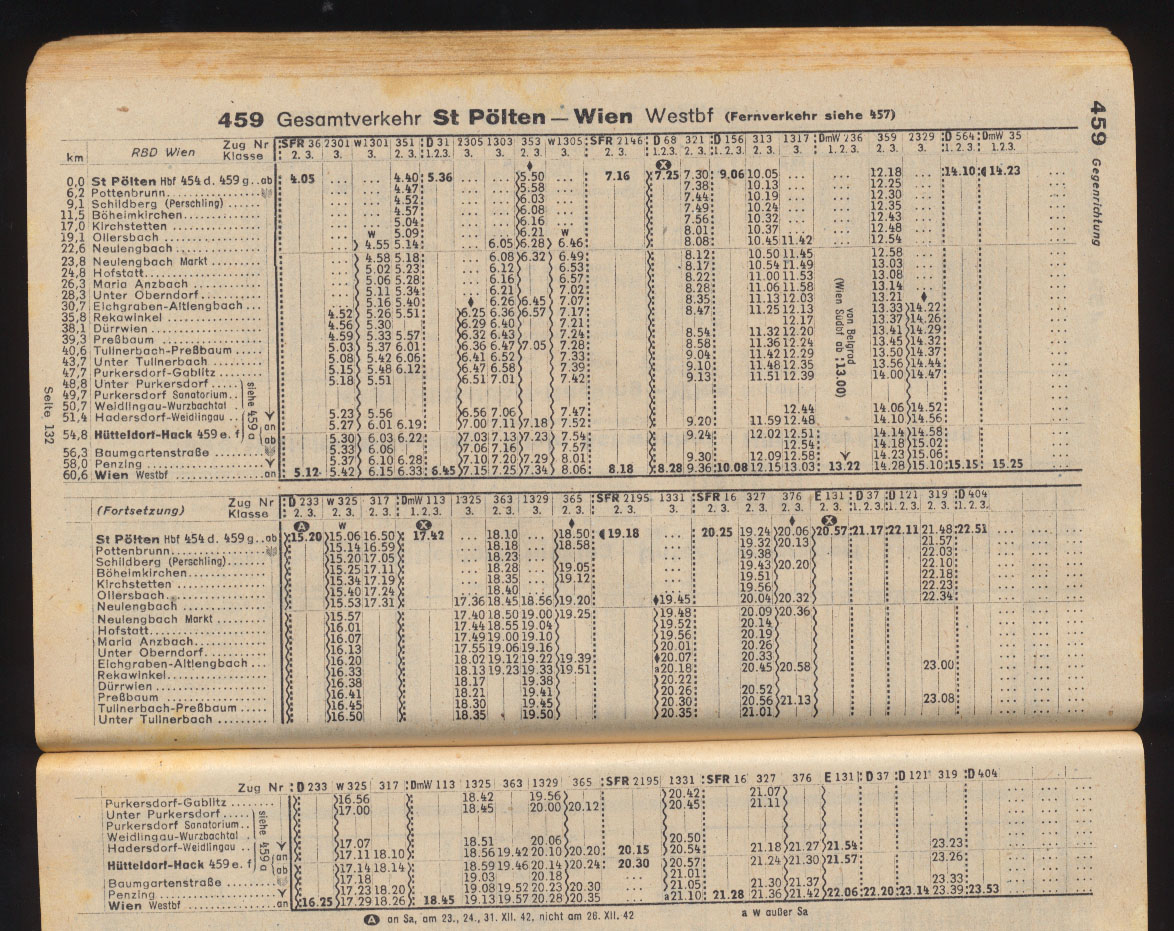 459 Gesamtverkehr St Pölten — Wien Westbf (Fernverkehr siehe 457)
459 Gegenrichtung
Seite 132
km RBD Wien Zug Nr SFR 36 2301 w1301 351 D 31 2305 1303 353 w1305 SFR 2146 D 68 321 D 156 313 1317 DmW 236 359 2329 D 564 DmW 35
Klasse 2. 3. 3. 3. 2. 3. 1.2.3. 3. 3. 2. 3. 3. 2. 3. 1.2.3. 2. 3. 1.2.3. 2. 3. 3. 1.2.3. 2. 3. 3. 1.2.3. 1.2.3.
0,0 St Pölten Hbf 454 d. 459 g..ab 4.05 ... ... 4.40 5.36 ... ... 5.50 ... 7.16 7.25 7.30 9.06 10.05 ... 12.18 ... 14.10 14.23
6,2 Pottenbrunn 4.47 5.58 7.38 10.13 12.25
9,1 Schildberg (Perschling) 4.52 6.03 7.44 10.19 12.30
11,5 Böheimkirchen 4.57 6.08 7.49 10.24 12.35
17,0 Kirchstetten 5.04 6.16 7.56 10.32 12.43
19,1 Ollersbach w 5.09 6.21 w 8.01 10.37 12.48
22,6 Neulengbach 4.55 5.14 6.05 6.28 6.46 8.08 10.45 11.42 12.54
23,8 Neulengbach Markt 4.58 5.18 6.08 6.32 6.49 8.12 10.50 11.45 12.58
24,8 Hofstatt 5.02 5.23 6.12 6.53 8.17 10.54 11.49 13.03
26,3 Maria Anzbach 5.06 5.28 6.16 6.57 8.22 11.00 11.53 13.08
28,3 Unter Oberndorf 5.11 5.34 6.21 7.02 8.28 11.06 11.58 13.14
30,7 Eichgraben-Altlengbach 5.16 5.40 6.26 6.45 7.07 8.35 11.13 12.03 13.21
35,8 Rekawinkel 4.52 5.26 5.51 6.25 6.36 6.57 7.17 8.47 11.25 12.13 13.33 14.22
38,1 Dürrwien 4.56 5.30 6.29 6.40 7.21 12.17 13.37 14.26
39,3 Preßbaum 4.59 5.33 5.57 6.32 6.43 7.24 8.54 11.32 12.20 13.41 14.29
40,6 Tullnerbach-Preßbaum 5.03 5.37 6.01 6.36 6.47 7.05 7.28 8.58 11.36 12.24 13.45 14.32
43,7 Unter Tullnerbach 5.08 5.42 6.06 6.41 6.52 7.33 9.04 11.42 12.29 13.50 14.37
47,7 Purkersdorf-Gablitz 5.15 5.48 6.12 6.47 6.58 7.39 9.10 11.48 12.35 13.56 14.44
48,8 Unter Purkersdorf 5.18 5.51 6.51 7.01 7.42 9.13 11.51 12.39 14.00 14.47
49,7 Purkersdorf Sanatorium
50,7 Weidlingau-Wurzbachtal 5.23 5.56 6.56 7.06 7.47 12.44 14.06 14.52
51,4 Hadersdorf-Weidlingau 5.27 6.01 6.19 7.00 7.11 7.18 7.52 9.20 11.59 12.48 14.10 14.56
siehe 459 a
an
ab
54,8 Hütteldorf-Hack 459 e. f 5.30 6.03 6.22 7.03 7.13 7.23 7.54 9.24 12.02 12.51 14.14 14.58
56,3 Baumgartenstraße 5.33 6.06 7.06 7.16 7.57 12.54 14.18 15.02
58,0 Penzing 5.37 6.10 6.28 7.10 7.20 7.29 8.01 9.30 12.09 12.58 14.23 15.06
60,6 Wien Westbf an 5.12 5.42 6.15 6.33 6.45 7.15 7.25 7.34 8.06 8.18 8.28 9.36 10.08 12.15 13.03 13.22 14.28 15.10 15.15 15.25
von Belgrad
(Wien Südbf ab 13.00)
(Fortsetzung) Zug Nr D 233 w 325 317 DmW 113 1325 363 1329 365 SFR 2195 1331 SFR 16 327 376 E 131 D 37 D 121 319 D 404
Klasse 2. 3. 2. 3. 2. 3. 1.2.3. 3. 2. 3. 3. 2. 3. 2. 3. 3. 2. 3. 2. 3. 2. 3. 2. 3. 1.2.3. 1.2.3. 2. 3. 1.2.3.
St Pölten Hbf 454 d. 459 g..ab 15.20 15.06 16.50 17.42 ... 18.10 ... 18.50 19.18 ... 20.25 19.24 20.06 20.57 21.17 22.11 21.48 22.51
Pottenbrunn 15.14 16.59 18.18 18.58 19.32 20.13 21.57
Schildberg (Perschling) 15.20 17.05 18.23 19.38 22.03
Böheimkirchen 15.25 17.11 18.28 19.05 19.43 20.20 22.10
Kirchstetten 15.34 17.19 18.35 19.12 19.51 22.18
Ollersbach 15.40 17.24 18.40 19.56 22.23
Neulengbach 15.53 17.31 17.36 18.45 18.56 19.20 19.45 20.04 20.32 22.34
Neulengbach Markt 15.57 17.40 18.50 19.00 19.25 19.48 20.09 20.36
Hofstatt 16.01 17.44 18.55 19.04 19.52 20.14
Maria Anzbach 16.07 17.49 19.00 19.10 19.56 20.19
Unter Oberndorf 16.13 17.55 19.06 19.16 20.01 20.26
Eichgraben-Altlengbach 16.20 18.02 19.12 19.22 19.39 20.07 20.33
Rekawinkel 16.33 18.13 19.23 19.33 19.51 a20.18 20.45 20.58 23.00
Dürrwien 16.38 18.17 19.38 20.22
Preßbaum 16.41 18.21 19.41 20.26 20.52
Tullnerbach-Preßbaum 16.45 18.30 19.45 20.30 20.56 21.13 23.08
Unter Tullnerbach 16.50 18.35 19.50 20.35 21.01
Zug Nr D 233 w 325 317 DmW 113 1325 363 1329 365 SFR 2195 1331 SFR 16 327 376 E 131 D 37 D 121 319 D 404
Purkersdorf-Gablitz 16.56 18.42 19.56 20.42 21.07
Unter Purkersdorf 17.00 18.45 20.00 20.12 20.45 21.11
Purkersdorf Sanatorium
Weidlingau-Wurzbachtal 17.07 18.51 20.06 20.50
Hadersdorf-Weidlingau 17.11 18.10 18.56 19.42 20.10 20.20 20.15 20.54 21.18 21.27 21.54 23.23
siehe 459 a
an
ab
Hütteldorf-Hack 459 e. f 17.14 18.14 18.59 19.46 20.14 20.24 20.30 20.57 21.24 21.30 21.57 23.26
Baumgartenstraße 17.18 19.03 20.18 21.01
Penzing 17.23 18.20 19.08 19.52 20.23 20.30 21.05 21.30 21.37 23.33
Wien Westbf an 16.25 17.29 18.26 18.45 19.13 19.57 20.28 20.35 a21.10 21.28 21.36 21.42 22.06 22.20 23.14 23.39 23.53
A an Sa, am 23., 24., 31. XII. 42, nicht am 26. XII. 42 a w außer Sa